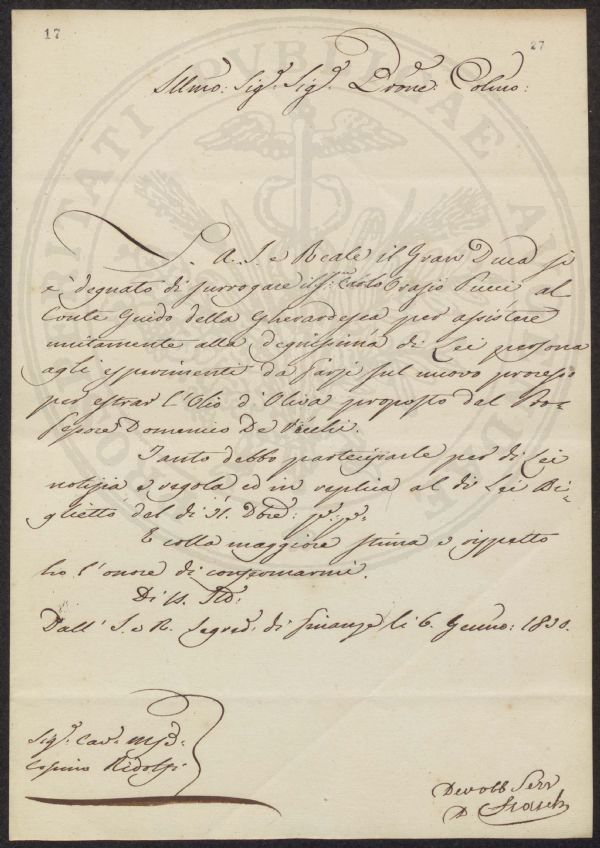 17
27
Illmo: Sig.e Sig.e Prone: Colmo:
S. A. I. e Reale il Gran Duca si
è degnato di surrogare il Sig. Carlo Orazio Pucci al
Conte Guido della Gherardesca per assistere
unitamente alla degnissima di Lei persona
agli esperimenti da farsi sul nuovo processo
per estrar l'Olio d'Oliva proposto dal Pro-
fessore Domenico De
Tanto debbo parteciparle per di Lei
notizia e regola ed in replica al di Lei Bi-
glietto del dì 31. Dbre:
E colla maggiore stima e rispetto
ho l'onore di confermarmi.
Di
Dall' I. e R. Segred. di Finanze li 6. Genno: 1830.
Sig.e Cav.e
Cosimo Ridolfi
Devott Serv
PERITATI PVBLICAE